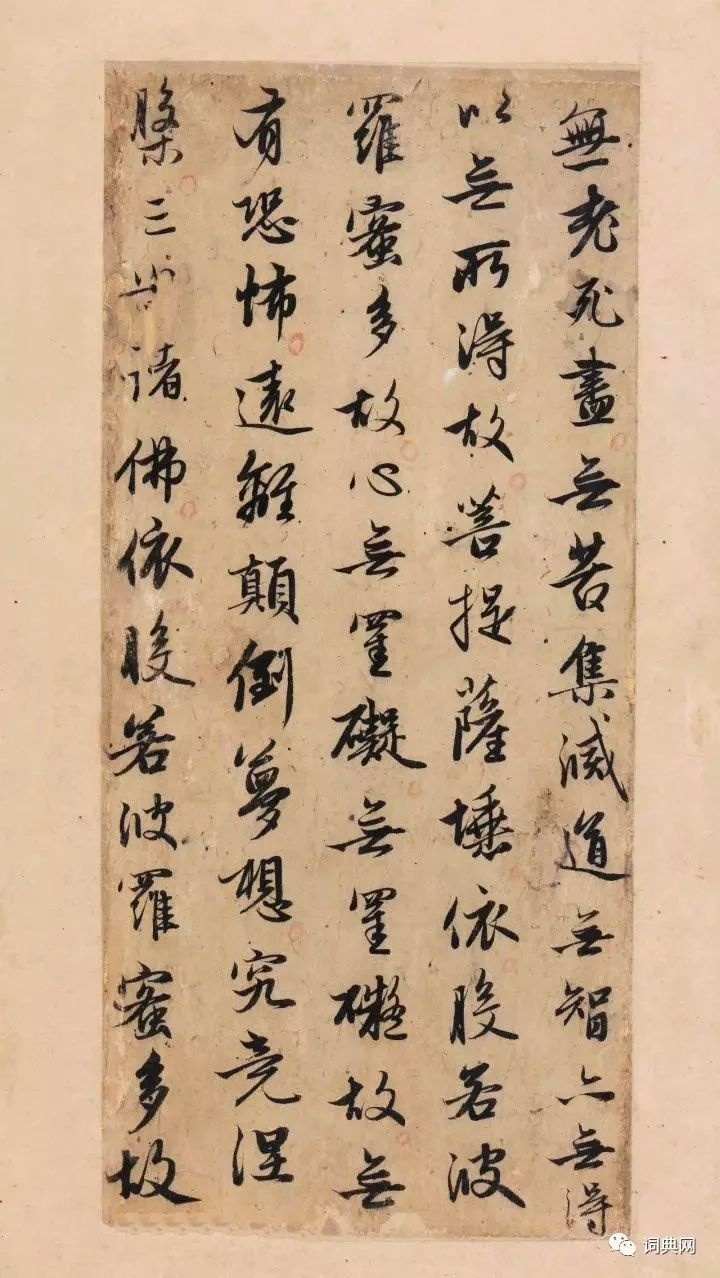 無老死盡無苦集滅道無智亦無得
以無所得故菩提薩埵依般若波
羅蜜多故心無罣礙無罣礙故無
有恐怖遠離顛倒夢想究竟涅
槃三世諸佛依般若波羅蜜多故
词典网